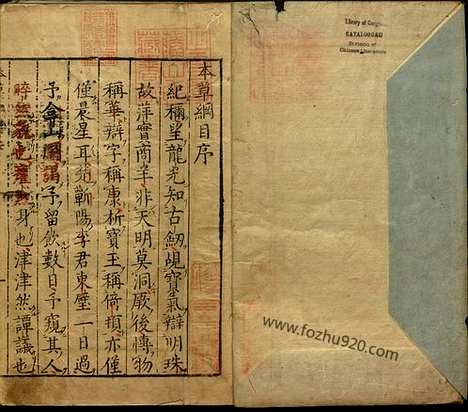 本草綱目序
紀稱望龍光知古劒覘寶氣辯明珠
故萍實商羊非天明莫洞厥後博物
稱華辯字稱康析寶玉稱倚頓亦僅
僅晨星耳楚蘄陽李君東璧一日過
予弇山園謁予留飲數日予窺其人
睟然貌也癯然身也津津然譚議也
Library of Congress
CATALOGUED
Division of
Chinese Literature
www.fozhu920.com